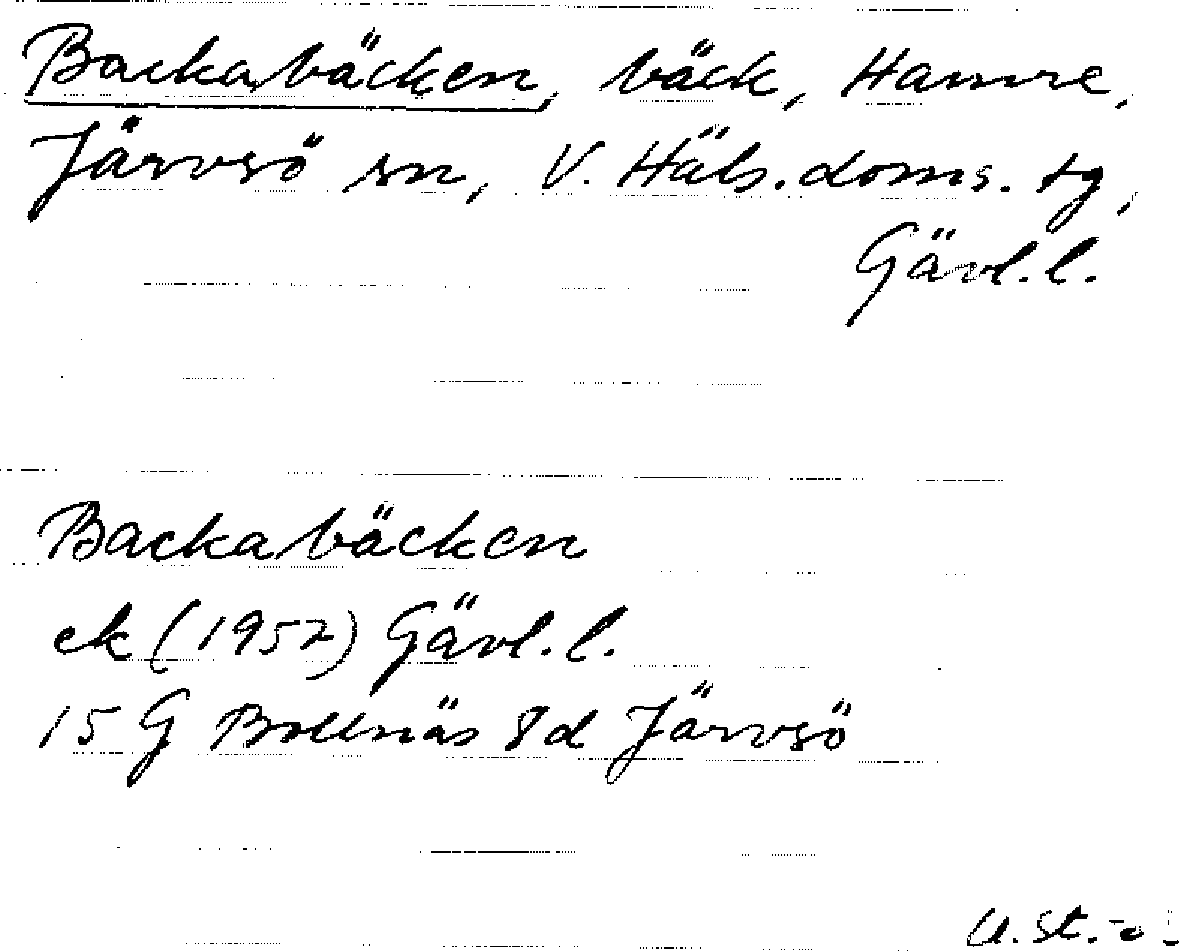 Backabäcken, bäck, Hamre,
Järvsö sn, V. Häls. doms. tg,
Gävl. l.
Backabäcken
ek (1952) Gävl. l.
15 G Bollnäs 8d Järvsö
U. St.-